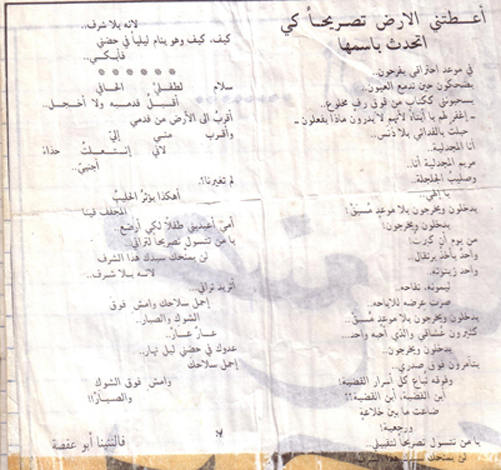 أعطتني الارض تصريحاً كي
اتحدث باسمها
في موعد احتراقي يفرحون..
يضحكون حين تدمع العيون..
يسحبوني ككتاب من فوق رف مخلوع..
ـ إغفر لهم يا أبتاه لأنهم لا يدرون ماذا يفعلون ـ
حبلت بالفدائي بلا دنس..
أنا المجدلية..
مريم المجدلية أنا..
وصليبُ الجلجلة..
يا إلهي..
يدخلون ويخرجون بلا موعدٍ مُسبَقْ!
يدخلون ويخرجون!
من يوم أن كبرت!
واحدٌ يأخذ برتقال..
واحد زيتونه..
ليمونه، تفاحه.
صرت عرضه للاباحه.
يدخلون ويخرجون بلا موعدٍ مُسبَقْ..
كثيرون عشاقي والذي أحبه واحد...
يدخلون ويخرجون..
يتآمرون فوق صدري..
وفوقه تباع كل أسرار القضية!
أين القضية، أين القضية؟؟
ضاعت ما بين خلاعةٍ
ورجعية!
يا من تتسول تصريحاً لتقبيلي..
لن يمنحك سيدك هذا الشرف
لانه بلا شرف..
كيف، كيف وهو ينام ليلياً في حضني
فأبكي..
* * * * * *
سلام لطفلي الحافي
أقبلُ قدميه ولا أخجل..
أقربُ الى الأرض من قدمي
وأقرب مني إليّ
لاني إنتعلتُ حذاءً
أجنبيّ..
لم تغيرنا؟
أهكذا يؤثرُ الحليبُ
المجفف فينا
أمي أعيديني طفلاً لكي أرضع.
يا من تتسول تصريحاً لتراني..
لن يمنحك سيدك هذا الشرف
لانه بلا شرف..
أتريد تراني..
إحمل سلاحك وامش فوق
الشوك والصبار..
عارٌ عارٌ..
عدوك في حضني ليل نهار..
إحمل سلاحك
وامش فوق الشوك
والصبارْ!!
فالنتينا أبو عقصة